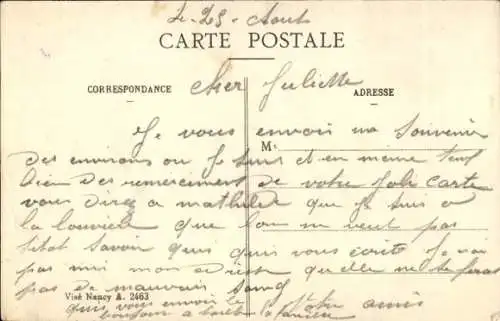 Le 25 Aout
CARTE POSTALE
CORRESPONDANCE
cher Juliette
ADRESSE
Je vous envoi un Souvenir
M
des environs ou Je suis et en meme temp
bien des remerciment de votre Joli carte
vous direz a mathilde que Je suis a
la louviere que l'on ne veut pas
sitot savoir quis quis vous écrits Je n'ai
pas mis mon adresse quelle ne se feras
pas de mauvais sang
Visé Nancy A. 2463
quis vous envoir le
bonjour a toute la votre amis